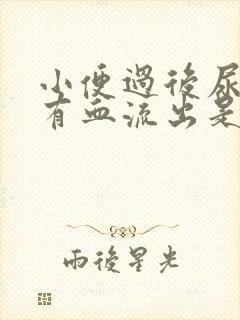 小便過後尿
有血流出是
雨後星光